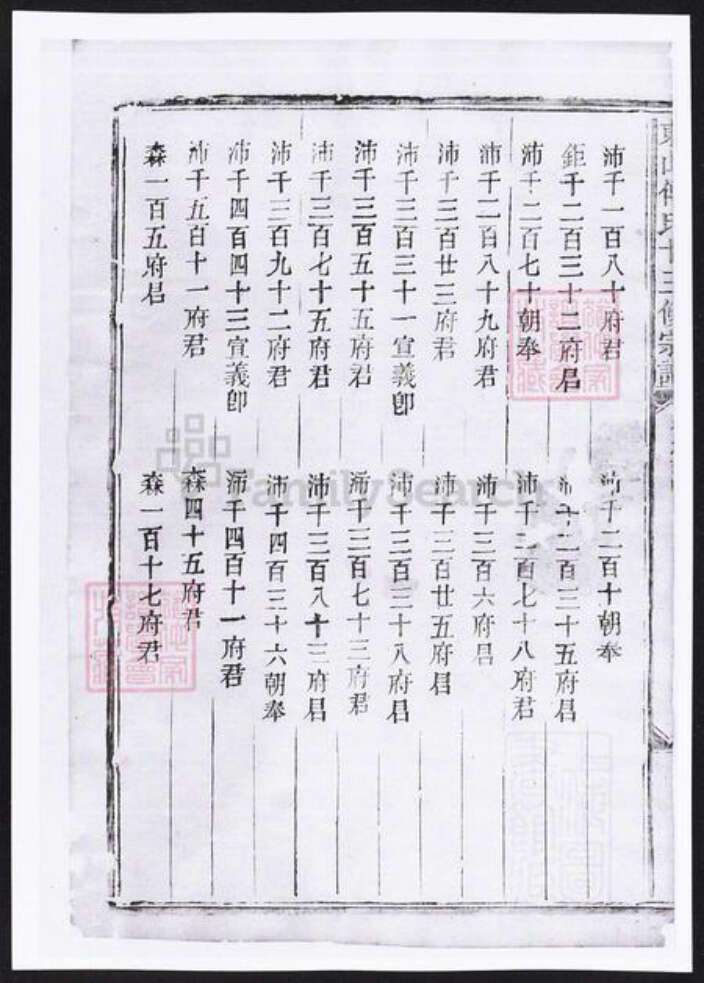 沛千一百八十府君
沛千二百十朝奉
鉅千二百三十二府君
千二百三十五府君
沛千二百七十朝奉
沛千二百七十八府君
沛千二百八十九府君
沛千三百六府君
沛千三百廿三府君
沛千三百廿五府君
沛千三百三十一宣義郎
沛千三百三十八府君
沛千三百五十五府君
沛千三百七十三府君
沛千三百七十五府君
沛千三百八十三府君
沛千三百九十二府君
沛千四百三十六朝奉
沛千四百四十三宣義郎
沛千四百十一府君
沛千五百十一府君
森四十五府君
森一百五府君
森一百十七府君
FamilySearch